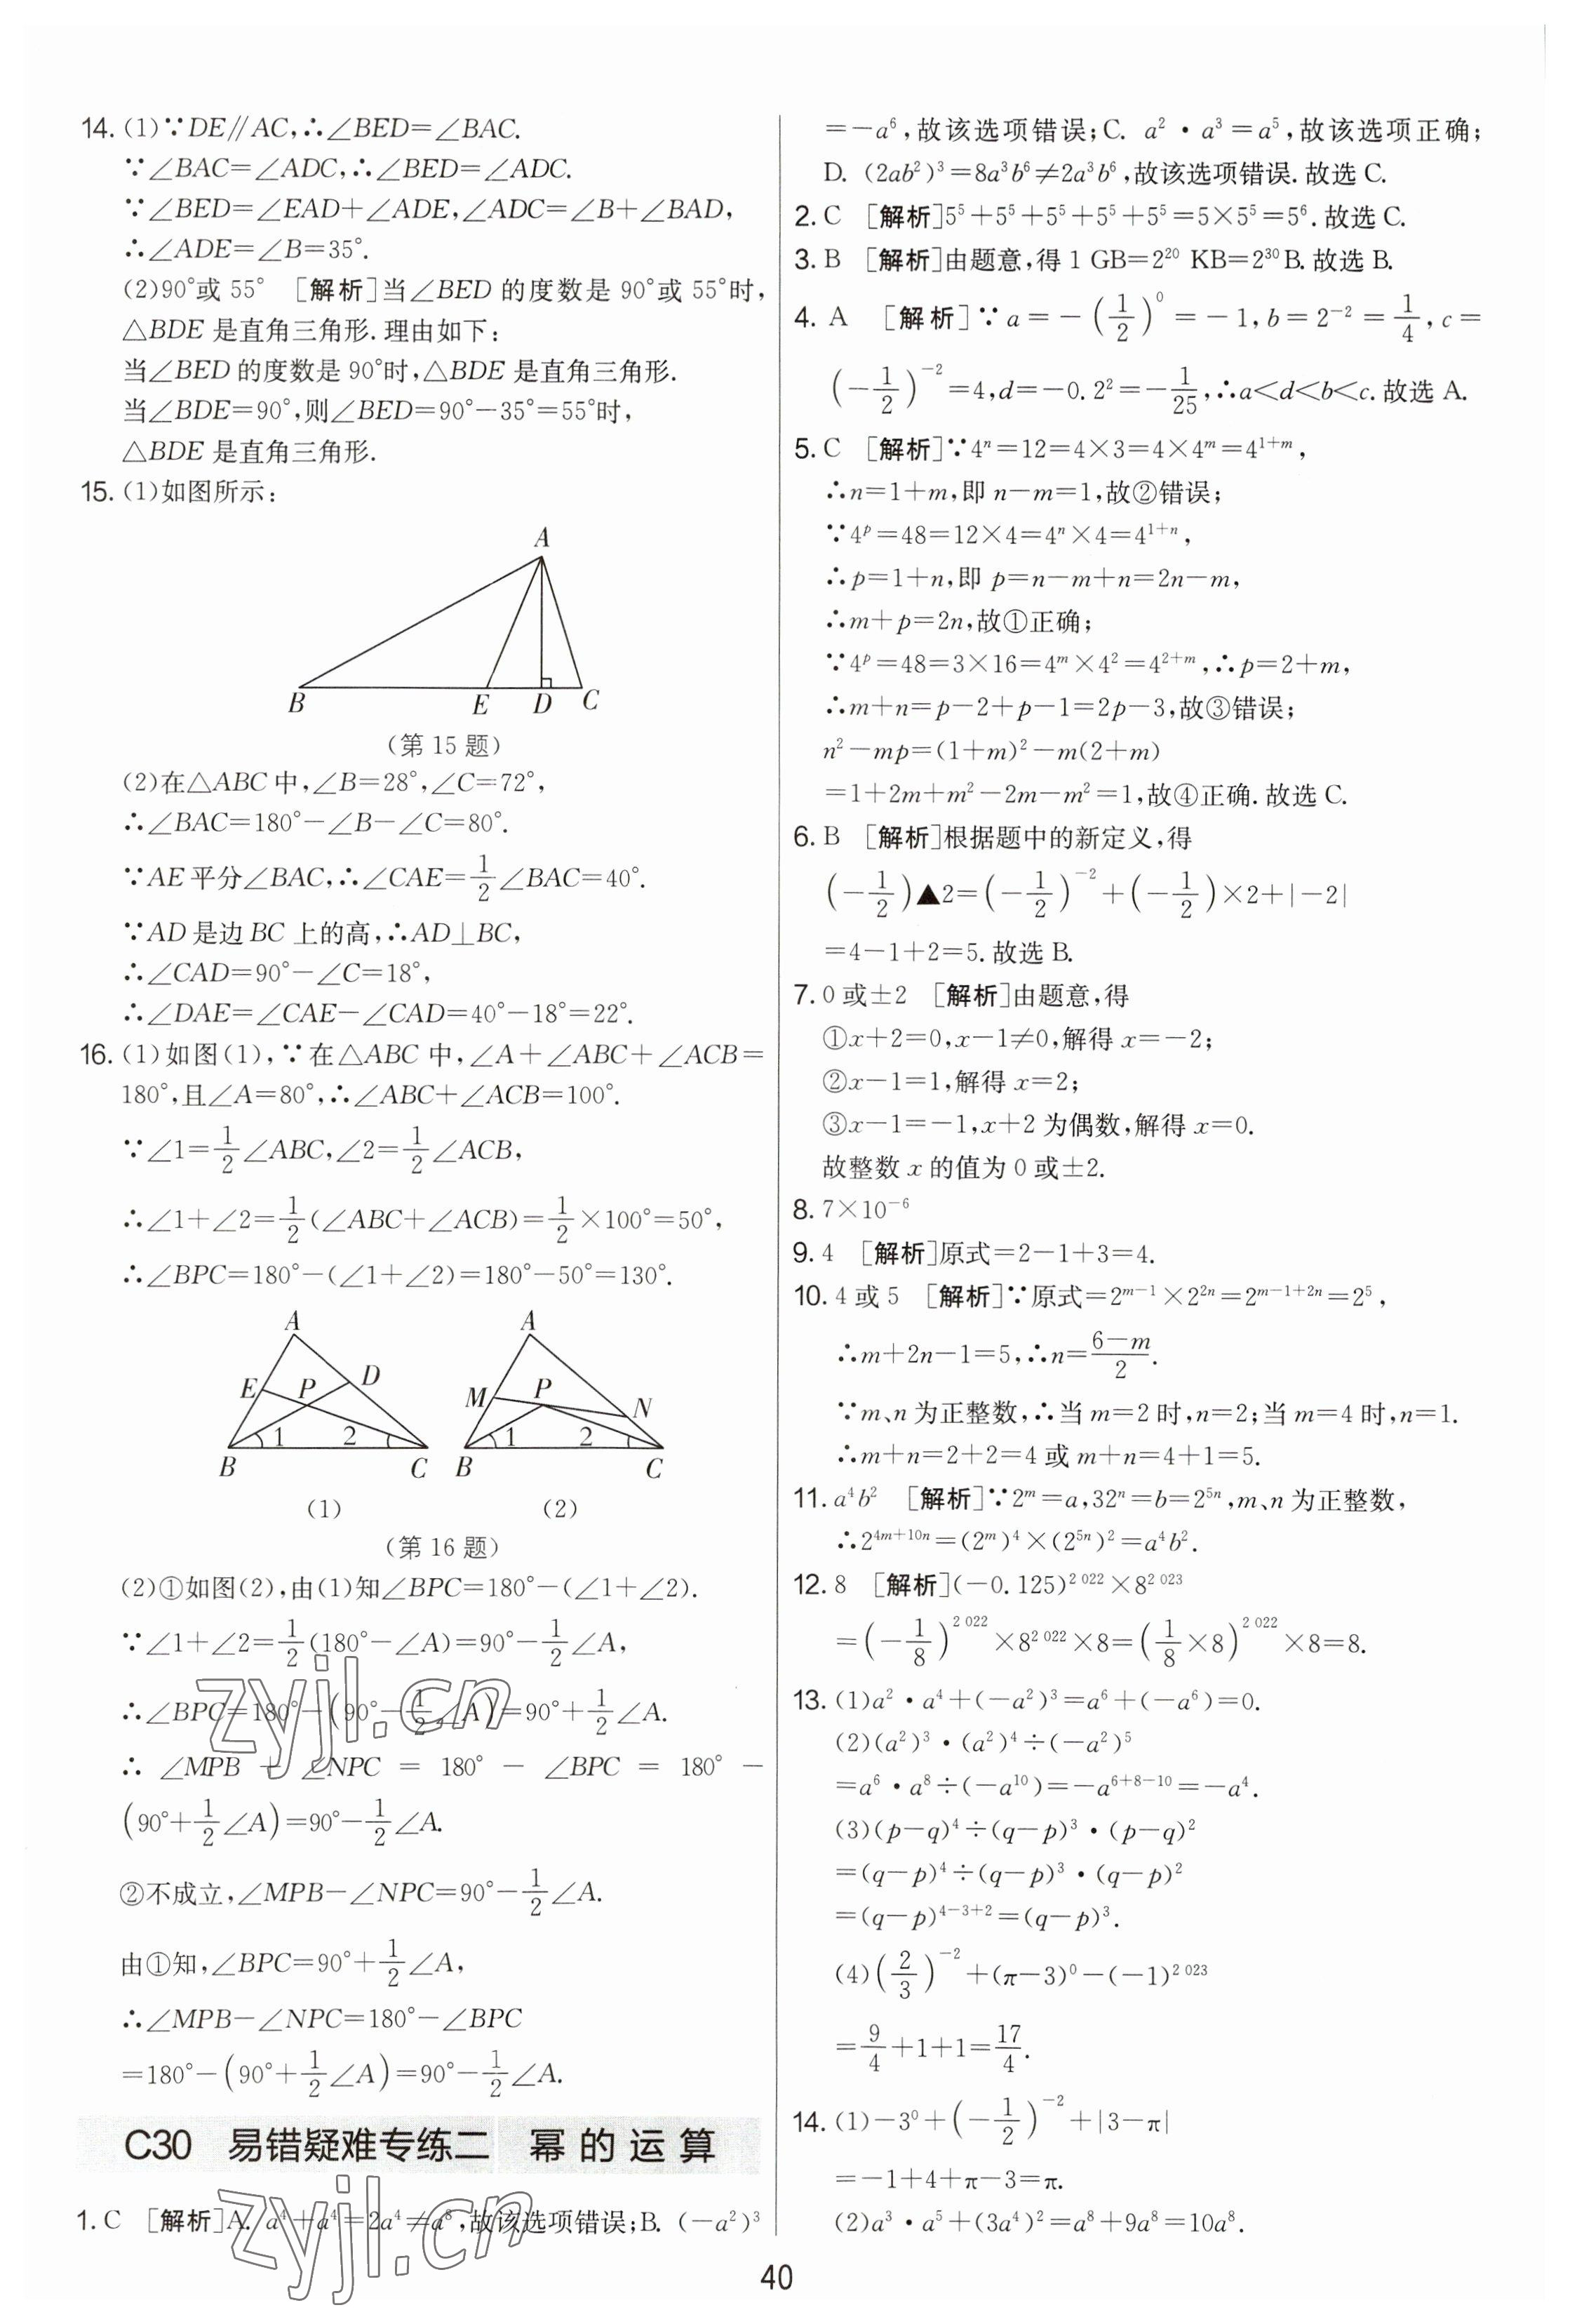 14. (1)∵DE∥AC,∴∠BED=∠BAC.
∵∠BAC=∠ADC,∴∠BED=∠ADC.
∵∠BED=∠EAD+∠ADE,∠ADC=∠B+∠BAD,
∴∠ADE=∠B=35°.
(2)90°或 55° [解析]当∠BED 的度数是 90°或 55°时,
△BDE 是直角三角形.理由如下:
当∠BED的度数是 90°时,△BDE 是直角三角形.
当∠BDE=90°,则∠BED=90°−35°=55°时,
△BDE 是直角三角形.
15. (1)如图所示:
A
B E D C
(第 15 题)
(2)在△ABC 中,∠B=28°,∠C=72°,
∴∠BAC=180°−∠B−∠C=80°.
∵AE平分∠BAC,∴∠CAE=1/2∠BAC=40°.
∵AD 是边 BC 上的高,∴AD⊥BC,
∴∠CAD=90°−∠C=18°,
∴∠DAE=∠CAE−∠CAD=40°−18°=22°.
16. (1)如图(1),∵在△ABC 中,∠A+∠ABC+∠ACB=
180°,且∠A=80°,∴∠ABC+∠ACB=100°.
∵∠1=1/2∠ABC,∠2=1/2∠ACB,
∴∠1+∠2=1/2(∠ABC+∠ACB)=1/2×100°=50°,
∴∠BPC=180°−(∠1+∠2)=180°−50°=130°.
A A
E P D M P N
1 2 1 2
B C B C
(1) (2)
(第 16 题)
(2)①如图(2),由(1)知∠BPC=180°−(∠1+∠2).
∵∠1+∠2=1/2(180°−∠A)=90°−1/2∠A,
∴∠BPC=180°−(90°−1/2∠A)=90°+1/2∠A.
∴ ∠MPB + ∠NPC = 180° − ∠BPC = 180° −
(90°+1/2∠A)=90°−1/2∠A.
②不成立,∠MPB−∠NPC=90°−1/2∠A.
由①知,∠BPC=90°+1/2∠A,
∴∠MPB−∠NPC=180°−∠BPC
=180°−(90°+1/2∠A)=90°−1/2∠A.
C30 易错疑难专练二 幂的运算
1. C [解析]A. a⁴+a⁴=2a⁴≠a⁸,故该选项错误;B. (−a²)³
=−a⁶,故该选项错误;C. a²·a³=a⁵,故该选项正确;
D. (2ab²)³=8a³b⁶≠2a³b⁶,故该选项错误.故选 C.
2. C [解析]5⁵+5⁵+5⁵+5⁵+5⁵=5×5⁵=5⁶.故选 C.
3. B [解析]由题意,得 1 GB=2²⁰ KB=2³⁰B.故选 B.
4. A [解析]∵a=−(1/2)⁰=−1,b=2⁻²=1/4,c=
(−1/2)⁻²=4,d=−0.2²=−1/25,∴a<d<b<c.故选 A.
5. C [解析]∵4ⁿ=12=4×3=4×4ᵐ=4¹⁺ᵐ,
∴n=1+m,即 n−m=1,故②错误;
∵4ᵖ=48=12×4=4ⁿ×4=4¹⁺ⁿ,
∴p=1+n,即 p=n−m+n=2n−m,
∴m+p=2n,故①正确;
∵4ᵖ=48=3×16=4ᵐ×4²=4²⁺ᵐ,∴p=2+m,
∴m+n=p−2+p−1=2p−3,故③错误;
n²−mp=(1+m)²−m(2+m)
=1+2m+m²−2m−m²=1,故④正确.故选 C.
6. B [解析]根据题中的新定义,得
(−1/2)▲2=(−1/2)⁻²+(−1/2)×2+|−2|
=4−1+2=5.故选 B.
7. 0 或±2 [解析]由题意,得
①x+2=0,x−1≠0,解得 x=−2;
②x−1=1,解得 x=2;
③x−1=−1,x+2 为偶数,解得 x=0.
故整数 x 的值为 0 或±2.
8. 7×10⁻⁶
9. 4 [解析]原式=2−1+3=4.
10. 4 或 5 [解析]∵原式=2ᵐ⁻¹×2²ⁿ=2ᵐ⁻¹⁺²ⁿ=2⁵,
∴m+2n−1=5,∴n=(6−m)/2.
∵m、n 为正整数,∴当 m=2 时,n=2;当 m=4 时,n=1.
∴m+n=2+2=4 或 m+n=4+1=5.
11. a⁴b² [解析]∵2ᵐ=a,32ⁿ=b=2⁵ⁿ,m、n 为正整数,
∴2⁴ᵐ⁺¹⁰ⁿ=(2ᵐ)⁴×(2⁵ⁿ)²=a⁴b².
12. 8 [解析](−0.125)²⁰²²×8²⁰²³
=(−1/8)²⁰²²×8²⁰²²×8=(1/8×8)²⁰²²×8=8.
13. (1)a²·a⁴+(−a²)³=a⁶+(−a⁶)=0.
(2)(a²)³·(a²)⁴÷(−a²)⁵
=a⁶·a⁸÷(−a¹⁰)=−a⁶⁺⁸⁻¹⁰=−a⁴.
(3)(p−q)⁴÷(q−p)³·(p−q)²
=(q−p)⁴÷(q−p)³·(q−p)²
=(q−p)⁴⁻³⁺²=(q−p)³.
(4)(2/3)⁻²+(π−3)⁰−(−1)²⁰²³
=9/4+1+1=17/4.
14. (1)−3⁰+(−1/2)⁻²+|3−π|
=−1+4+π−3=π.
(2)a³·a⁵+(3a⁴)²=a⁸+9a⁸=10a⁸.
40
zyjl.cn
zyjl.cn